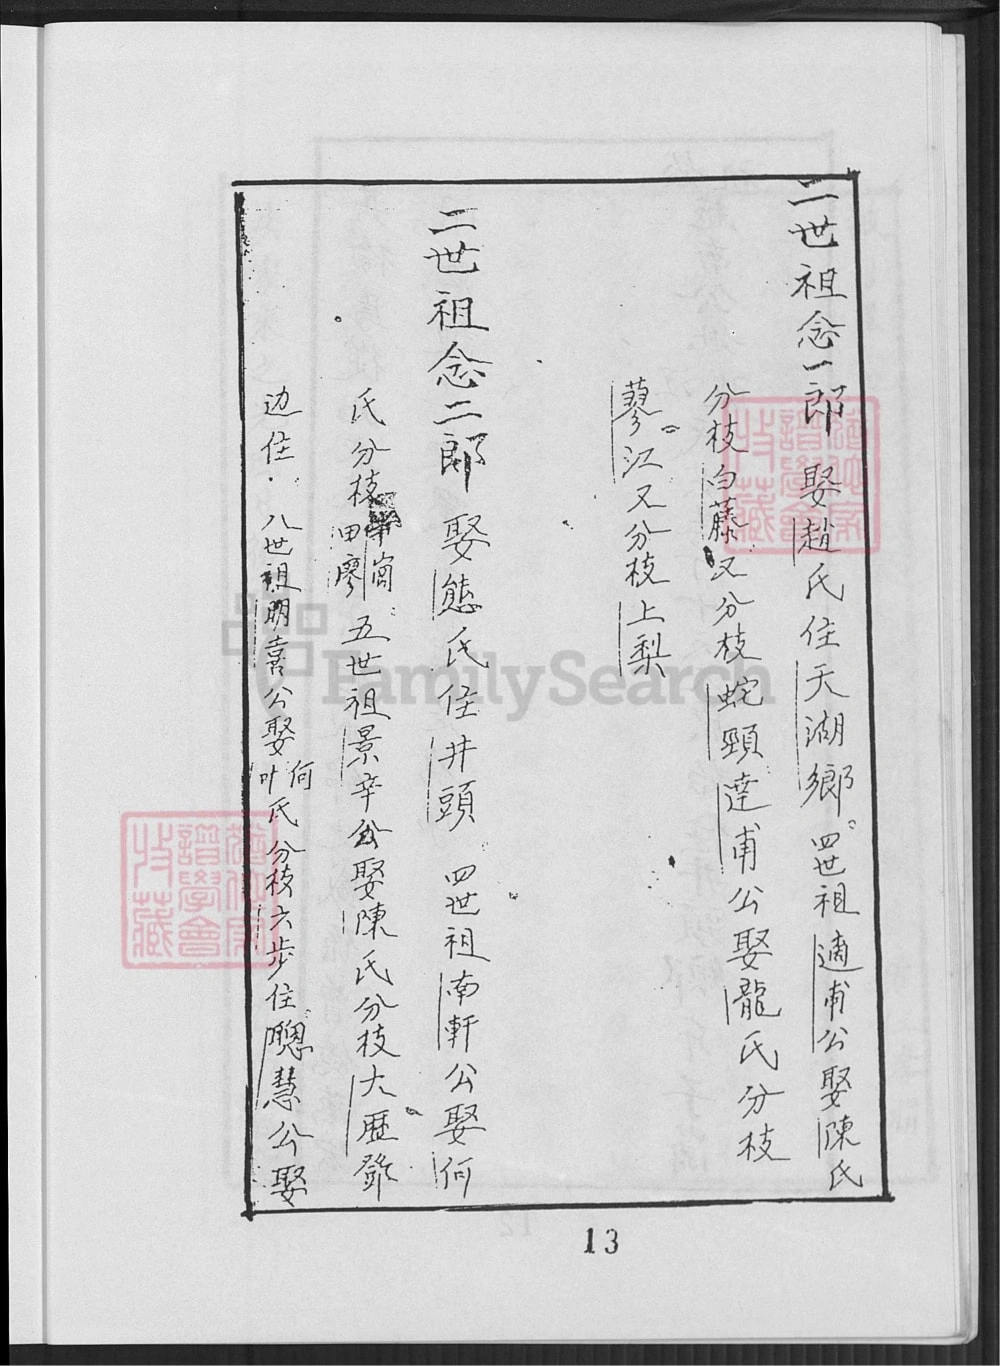 二世祖念一郎 娶趙氏住天湖鄉 四世祖適甫公娶陳氏
分枝白藤又分枝蛇頸達甫公娶龍氏分枝
蓼江又分枝上梨
二世祖念二郎 娶態氏住井頭 四世祖南軒公娶何
氏分枝崗田廖 五世祖景辛公娶陳氏分枝大歴鄧
边住 八世祖明喜公娶何叶氏分枝六步住聰慧公娶
13
FamilySearch
譜學會
收藏
譜學會
收藏